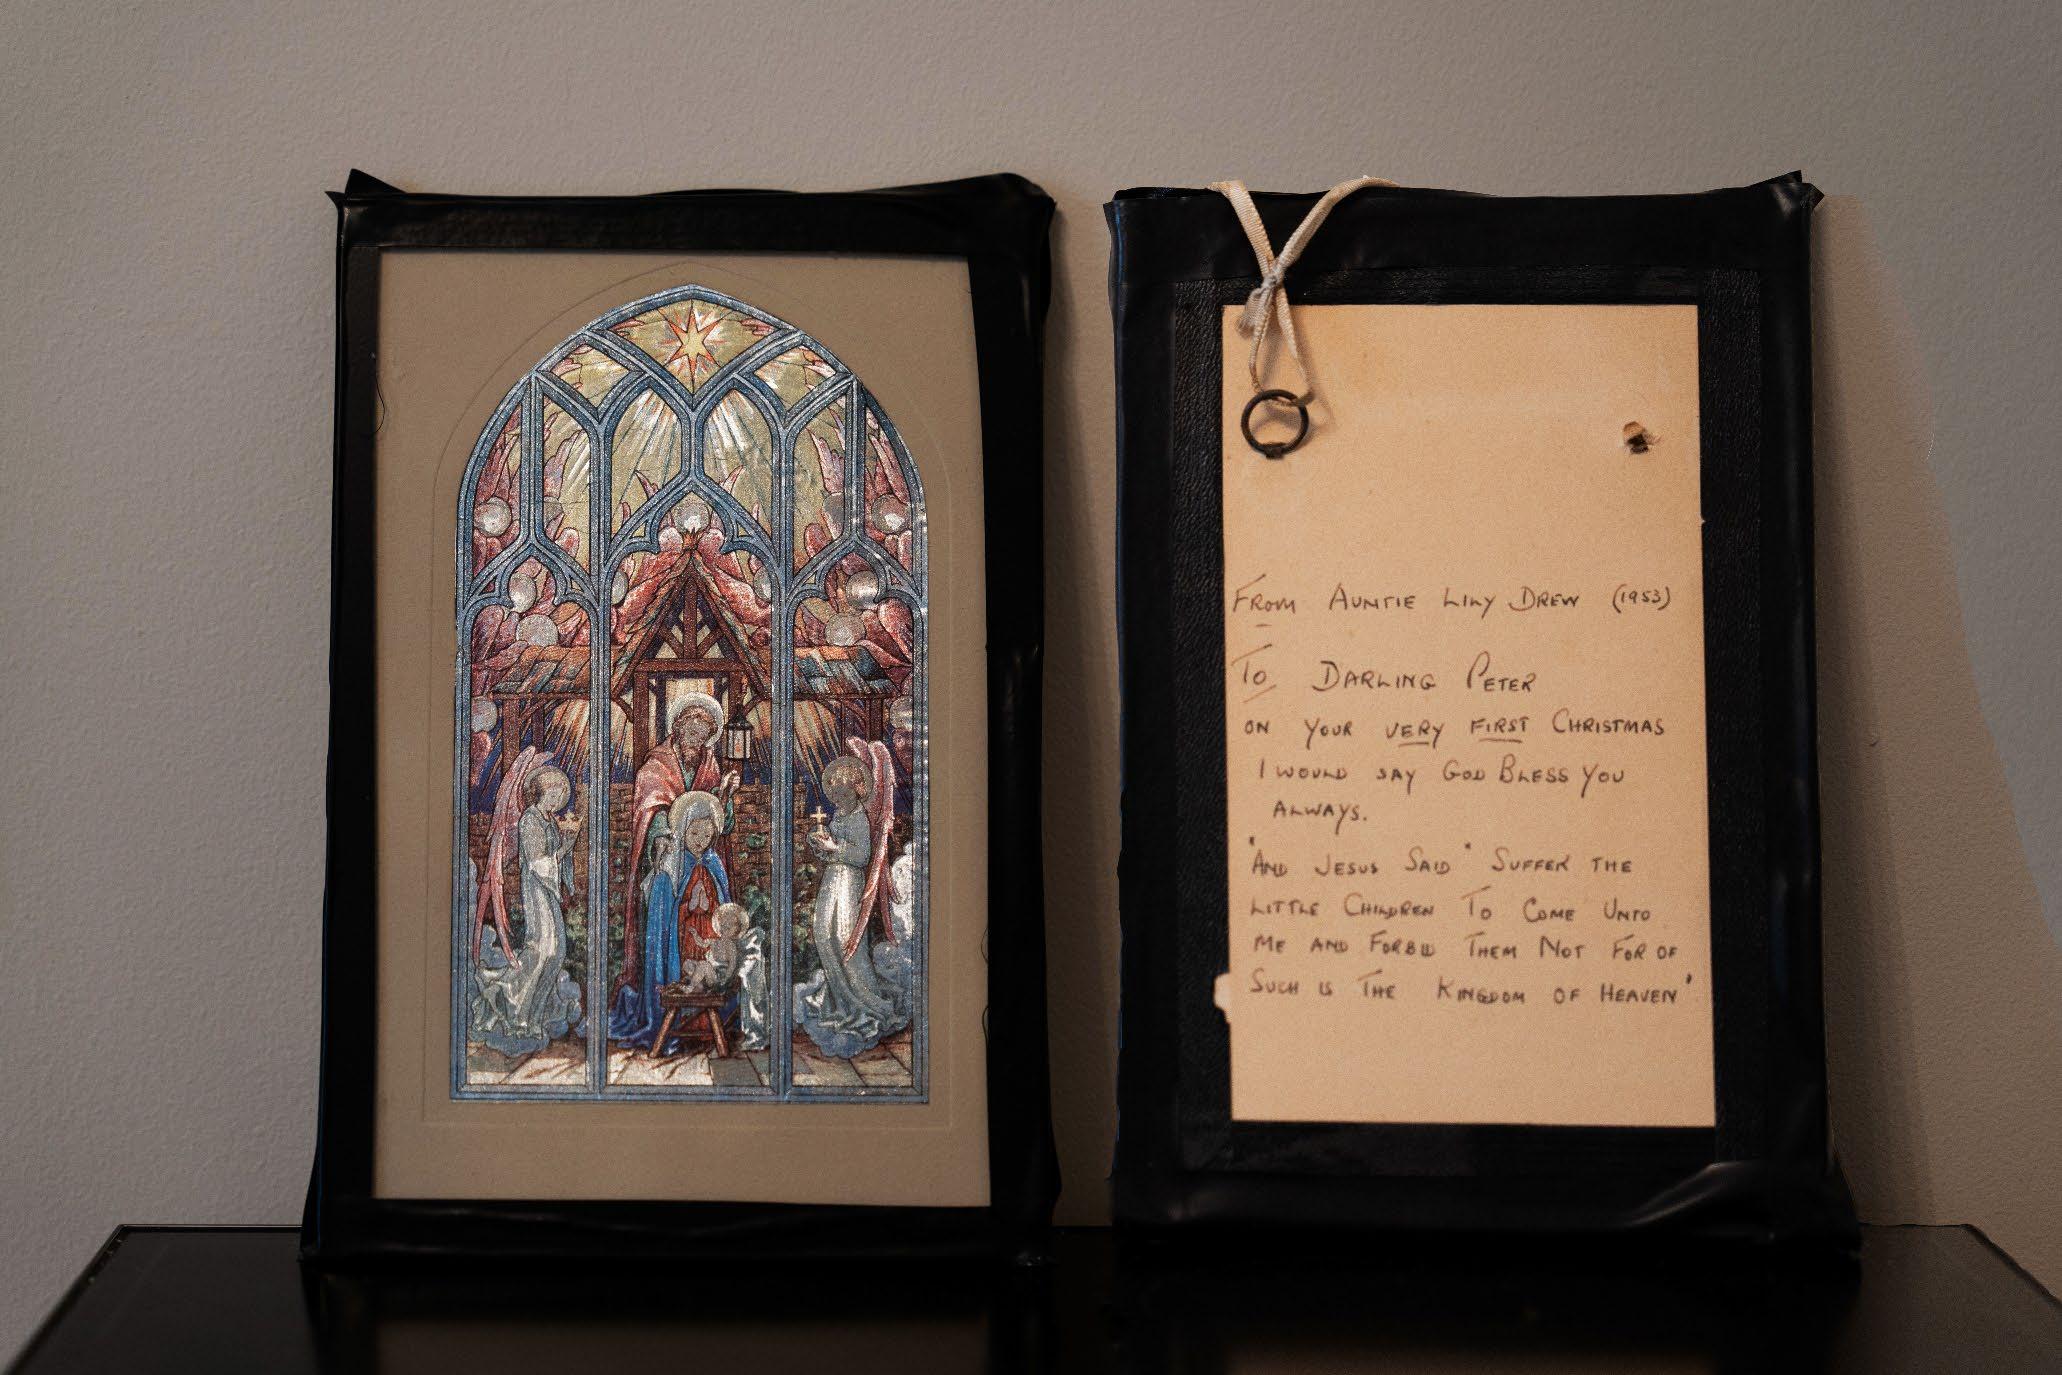 From Auntie Lily Drew (1953)
To Darling Peter
on your very first Christmas
I would say God Bless You
always.
"And Jesus Said" Suffer the
little Children To Come Unto
me and Forbid Them Not For of
Such is The Kingdom of Heaven"